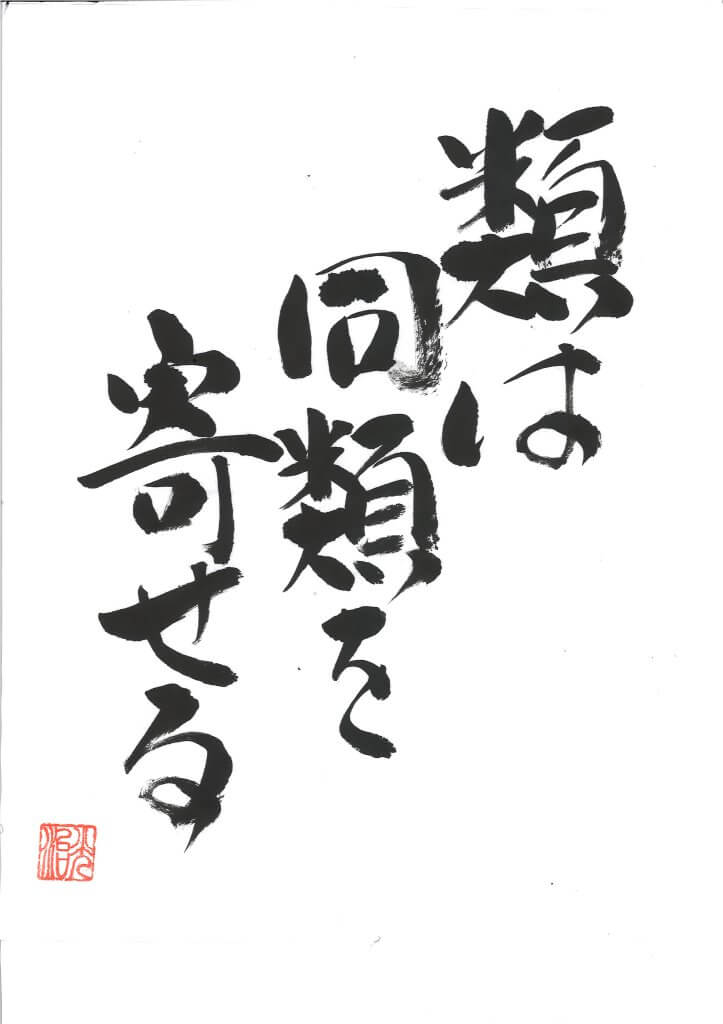 類は
同類を
寄せる